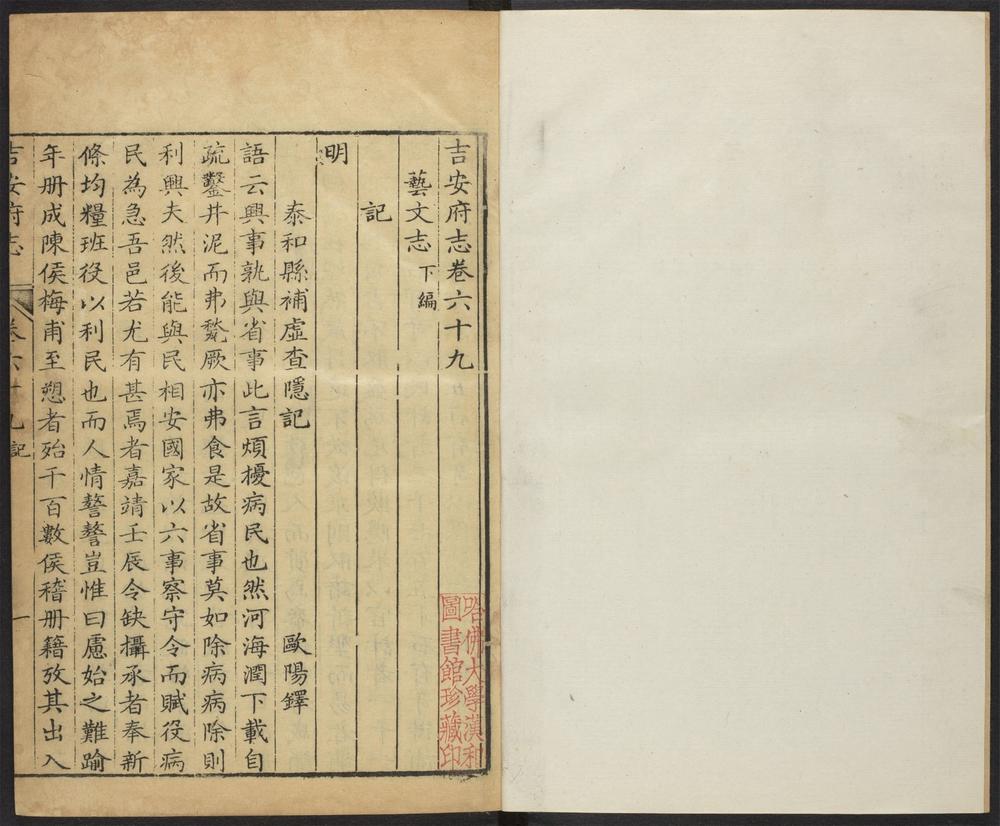 吉安府志卷六十九
藝文志下編
記
明
泰和縣補虛查隱記 歐陽鐸
語云興事孰與省事此言煩擾病民也然河海潤下載自
疏鑿井泥而弗甃厥亦弗食是故省事莫如除病病除則
利興夫然後能與民相安國家以六事察守令而賦役病
民為急吾邑若尤有甚焉者嘉靖壬辰令缺攝承者奉新
條均糧班役以利民也而人情謷謷豈惟曰慮始之難踰
年册成陳侯梅甫至愬者殆千百數侯稽册籍攷其出入
吉安府志 卷六十九 記 一
哈佛大學漢和
圖書館珍藏印